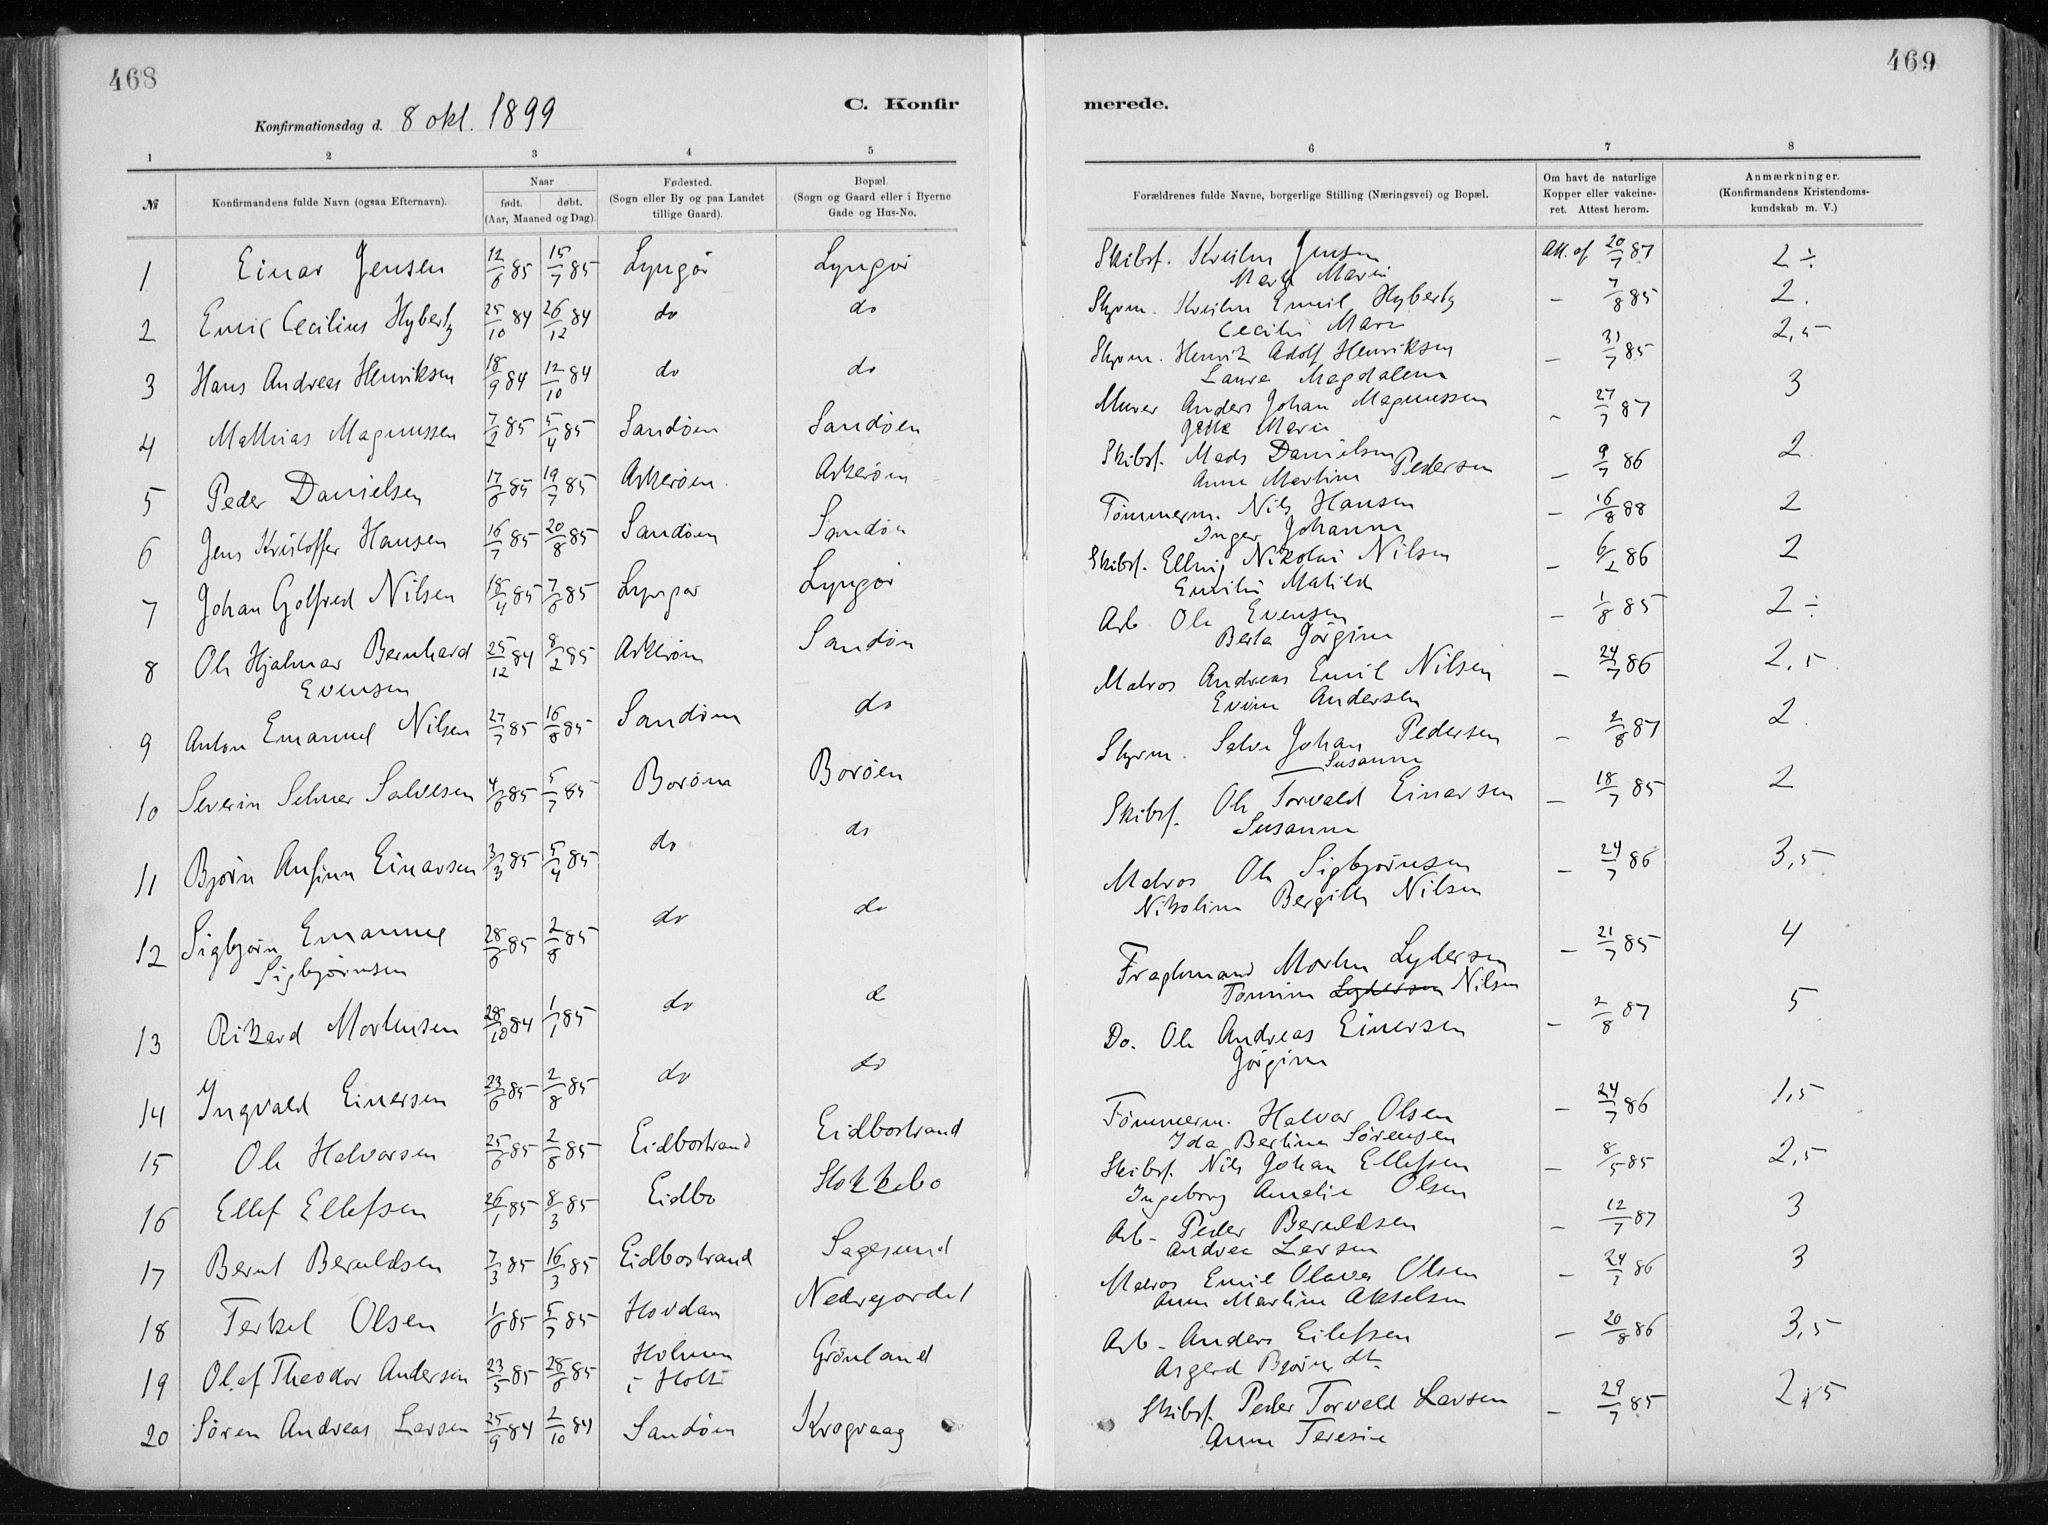 468
469
Konfirmationsdag d. 8 okt. 1899
C. Konfir
merede.
1 2 3 4 5
6 7 8
№ Konfirmandens fulde Navn (ogsaa Efternavn). Naar født. døbt. (Aar, Maaned og Dag). Fødested. (Sogn eller By og paa Landet tillige Gaard). Bopæl. (Sogn og Gaard eller i Byerne Gade og Hus-No.
Forældrenes fulde Navne, borgerlige Stilling (Næringsvei) og Bopæl. Om havt de naturlige Kopper eller vakcineret. Attest herom. Anmærkninger. (Konfirmandens Kristendomskundskab m. V.)
1 Einar Jensen 12/6 85 15/7 85 Lyngør Lyngør
Skibsf. Jensen Att. af 20/7 87 2 ÷
Marie
2 Emil Cecilius Hybertz 25/10 84 26/12 84 do do
Styrm. Emil Hybertz – 7/8 85 2.
Cecilie Marie
3 Hans Andreas Henriksen 18/9 84 12/10 84 do do
Styrm. Henrik Adolf Henriksen – 31/7 85 2,5
Laura Magdalena
4 Mathias Magnussen 7/2 85 5/4 85 Sandøen Sandøen
Murer Anders Johan Magnussen – 27/7 87 3
Marie
5 Peder Danielsen 17/6 85 19/7 85 Askerøen Askerøen
Skibsf. Mads Danielsen – 9/7 86 2
Anne Martine Pedersen
6 Jens Kristoffer Hansen 16/7 85 20/8 85 Sandøen Sandøen
Tømmerm. Nils Hansen – 16/8 88 2
Inger Johanne
7 Johan Golfred Nilsen 18/4 85 7/6 85 Lyngør Lyngør
Skibsf. Nikolai Nilsen – 6/2 86 2
Emilie Matilde
8 Ole Hjalmar Bernhard 25/12 84 8/2 85 Askerøen Sandøen
Evensen
Arb. Ole Evensen – 1/8 85 2 ÷
Berta Jørgine
9 Anton Emanuel Nilsen 27/7 85 16/8 85 Sandøen do
Matros Andreas Emil Nilsen – 24/7 86 2,5
Andersen
10 Severin Selmer Salvesen 4/6 85 5/7 85 Borøen Borøen
Styrm. Salve Johan Pedersen – 2/8 87 2.
Susanne
11 Bjørn Anfinn Einarsen 3/3 85 5/4 85 do do
Skibsf. Ole Torvald Einarsen – 18/7 85 2
Susanne
12 Sigbjørn Emanuel 28/6 85 2/8 85 do do
Sigbjørnsen
Matros Ole Sigbjørnsen – 24/7 86 3,5
Nikoline Bergitte Nilsen
13 Rikard Mortensen 28/10 84 1/1 85 do do
Fragtmand Morten Lydersen – 21/7 85 4
Tomine Lydersen Nilsen
14 Ingvald Einersen 23/6 85 2/8 85 do do
Do. Ole Andreas Einersen – 2/8 87 5
Jørgine
15 Ole Halvorsen 25/6 85 2/8 85 Eidbostrand Eidbostrand
Tømmerm. Halvor Olsen – 24/7 86 1,5
Ida Bertine Sørensen
16 Ellef Ellefsen 26/1 85 8/3 85 Eidbo Stokkebo
Skibsf. Nils Johan Ellefsen – 8/5 85 2,5
Ingeborg Amalie Olsen
17 Bernt Beruldsen 7/3 85 16/3 85 Eidbostrand Sagesund
Arb. Peder Beruldsen – 12/7 87 3
Andrea Larsen
18 Terkel Olsen 1/6 85 5/7 85 Hovdan Nedregardet
Matros Emil Olaves Olsen – 24/7 86 3
Anne Martine Akselsen
19 Olaf Theodor Andersen 23/5 85 28/6 85 Holmen i Holt Grønland
Arb. Anders Eilefsen – 20/8 86 3,5
Asgerd Bjørnsdt.
20 Søren Andreas Larsen 25/9 84 2/10 84 Sandøen Krogvaag
Skibsf. Peder Torvald Larsen – 29/7 85 2,5
Anne Teresie